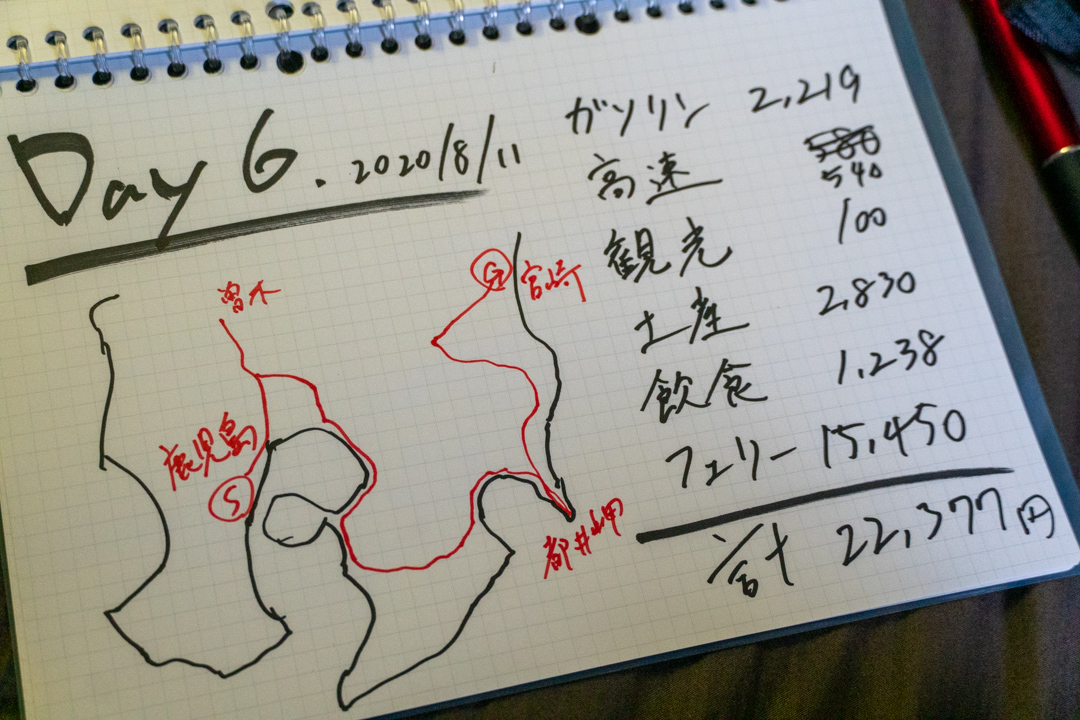 Day 6. 2020/8/11
ガソリン 2,219
高速 540
観光 100
土産 2,830
飲食 1,238
フェリー 15,450
合計 22,377円
曽木
G 宮崎
鹿児島
S
都井岬